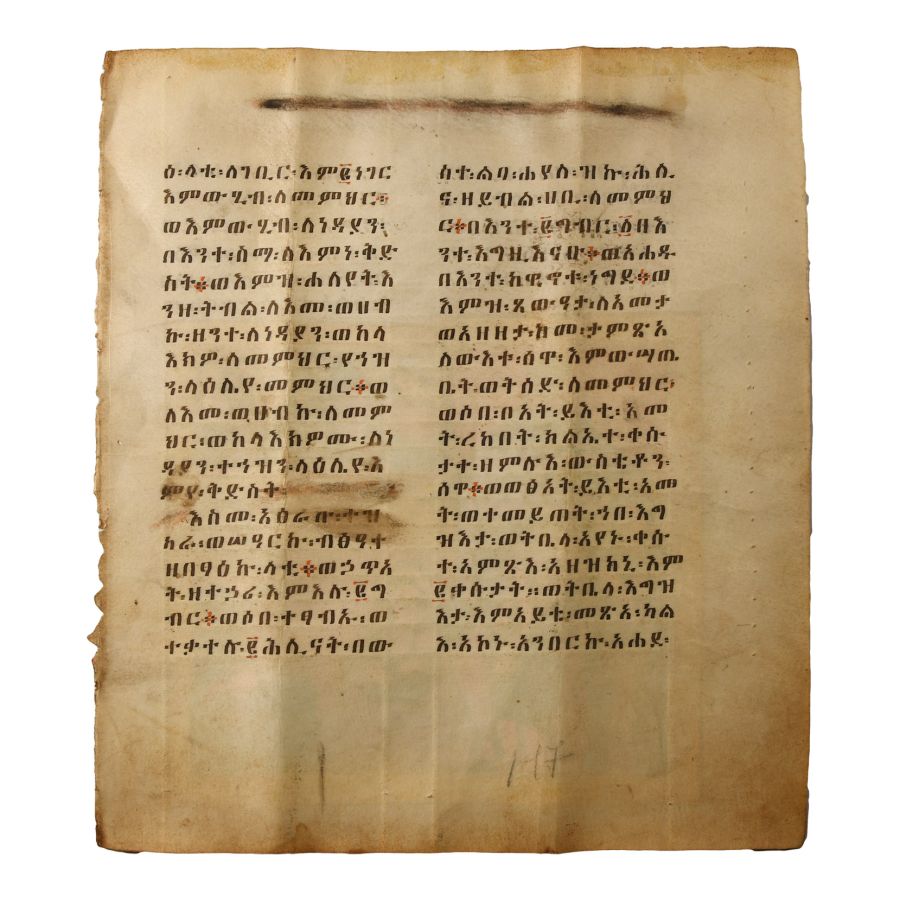 ዕ፡ላቲ፡ለገቢር፡እም፪ነገር
እምውሂብ፡ለመምህር፡
ወእምውሂብ፡ለነዳያን፡
በእንተ፡ስማ፡ለእምነ፡ቅድ
ስት፡ወእምዝ፡ሐለየት፡እ
ንዘ፡ትብል፡ለእመ፡ወሀብ
ኩ፡ዘንተ፡ለነዳያን፡ወከላ
እክዎ፡ለመምህር፡የኀዝ
ን፡ላዕሌየ፡መምህር፡ወ
ለእመ፡ወሀብኩ፡ለመም
ህር፡ወከላእክዎሙ፡ለነ
ዳያን፡ተኀዝን፡ላዕሌየ፡እ
ምየ፡ቅድስት፡
እስመ፡አዕራ
ወሣዓርኩ፡ብፅዓተ
ዚበፃዕኩ፡ላቲ፡ወኃጥአ
ት፡ዘተኃሪ፡እምእሉ፡፪ግ
ብር፡ወሶበ፡ተፃብኡ፡ወ
ተቃተሉ፡፪ሕሊናት፡በው
ስተ፡ልባ፡ሐየለ፡ዝኩ፡ሕሊ
ና፡ዘይብል፡ሀቢ፡ለመምህ
ር፡በእንተ፡፪ግብር፡፩በእ
ንተ፡እግዚእናሁ፡ወአሐዱ
በእንተ፡ከዊኖተ፡ነግደ፡ወ
እምዝ፡ጸውዓታ፡ለአመታ
ወአዘዘታ፡ከመ፡ታምጽአ
ለውእቱ፡ሰዋ፡እምውሣጤ
ቤት፡ወትሰደ፡ለመምህር፡
ወሶበ፡ቦአት፡ይእቲ፡አመ
ት፡ረከበት፡ክልኤተ፡ቀሱ
ታተ፡ዘምሉእ፡ውስቴቶን፡
ሰዋ፡ወወፅአት፡ይእቲ፡አመ
ት፡ወተመይጠት፡ኀበ፡እግ
ዝእታ፡ወትቤላ፡አየኑ፡ቀሱ
ተ፡አምጽእ፡አዘዝክኒ፡እም
፪ቀሱታት።ወትቤላ፡እግዝ
እታ፡እምአይቴ፡መጽአ፡ካል
እ፡አኮኑ፡አንበርኩ፡አሐደ፡